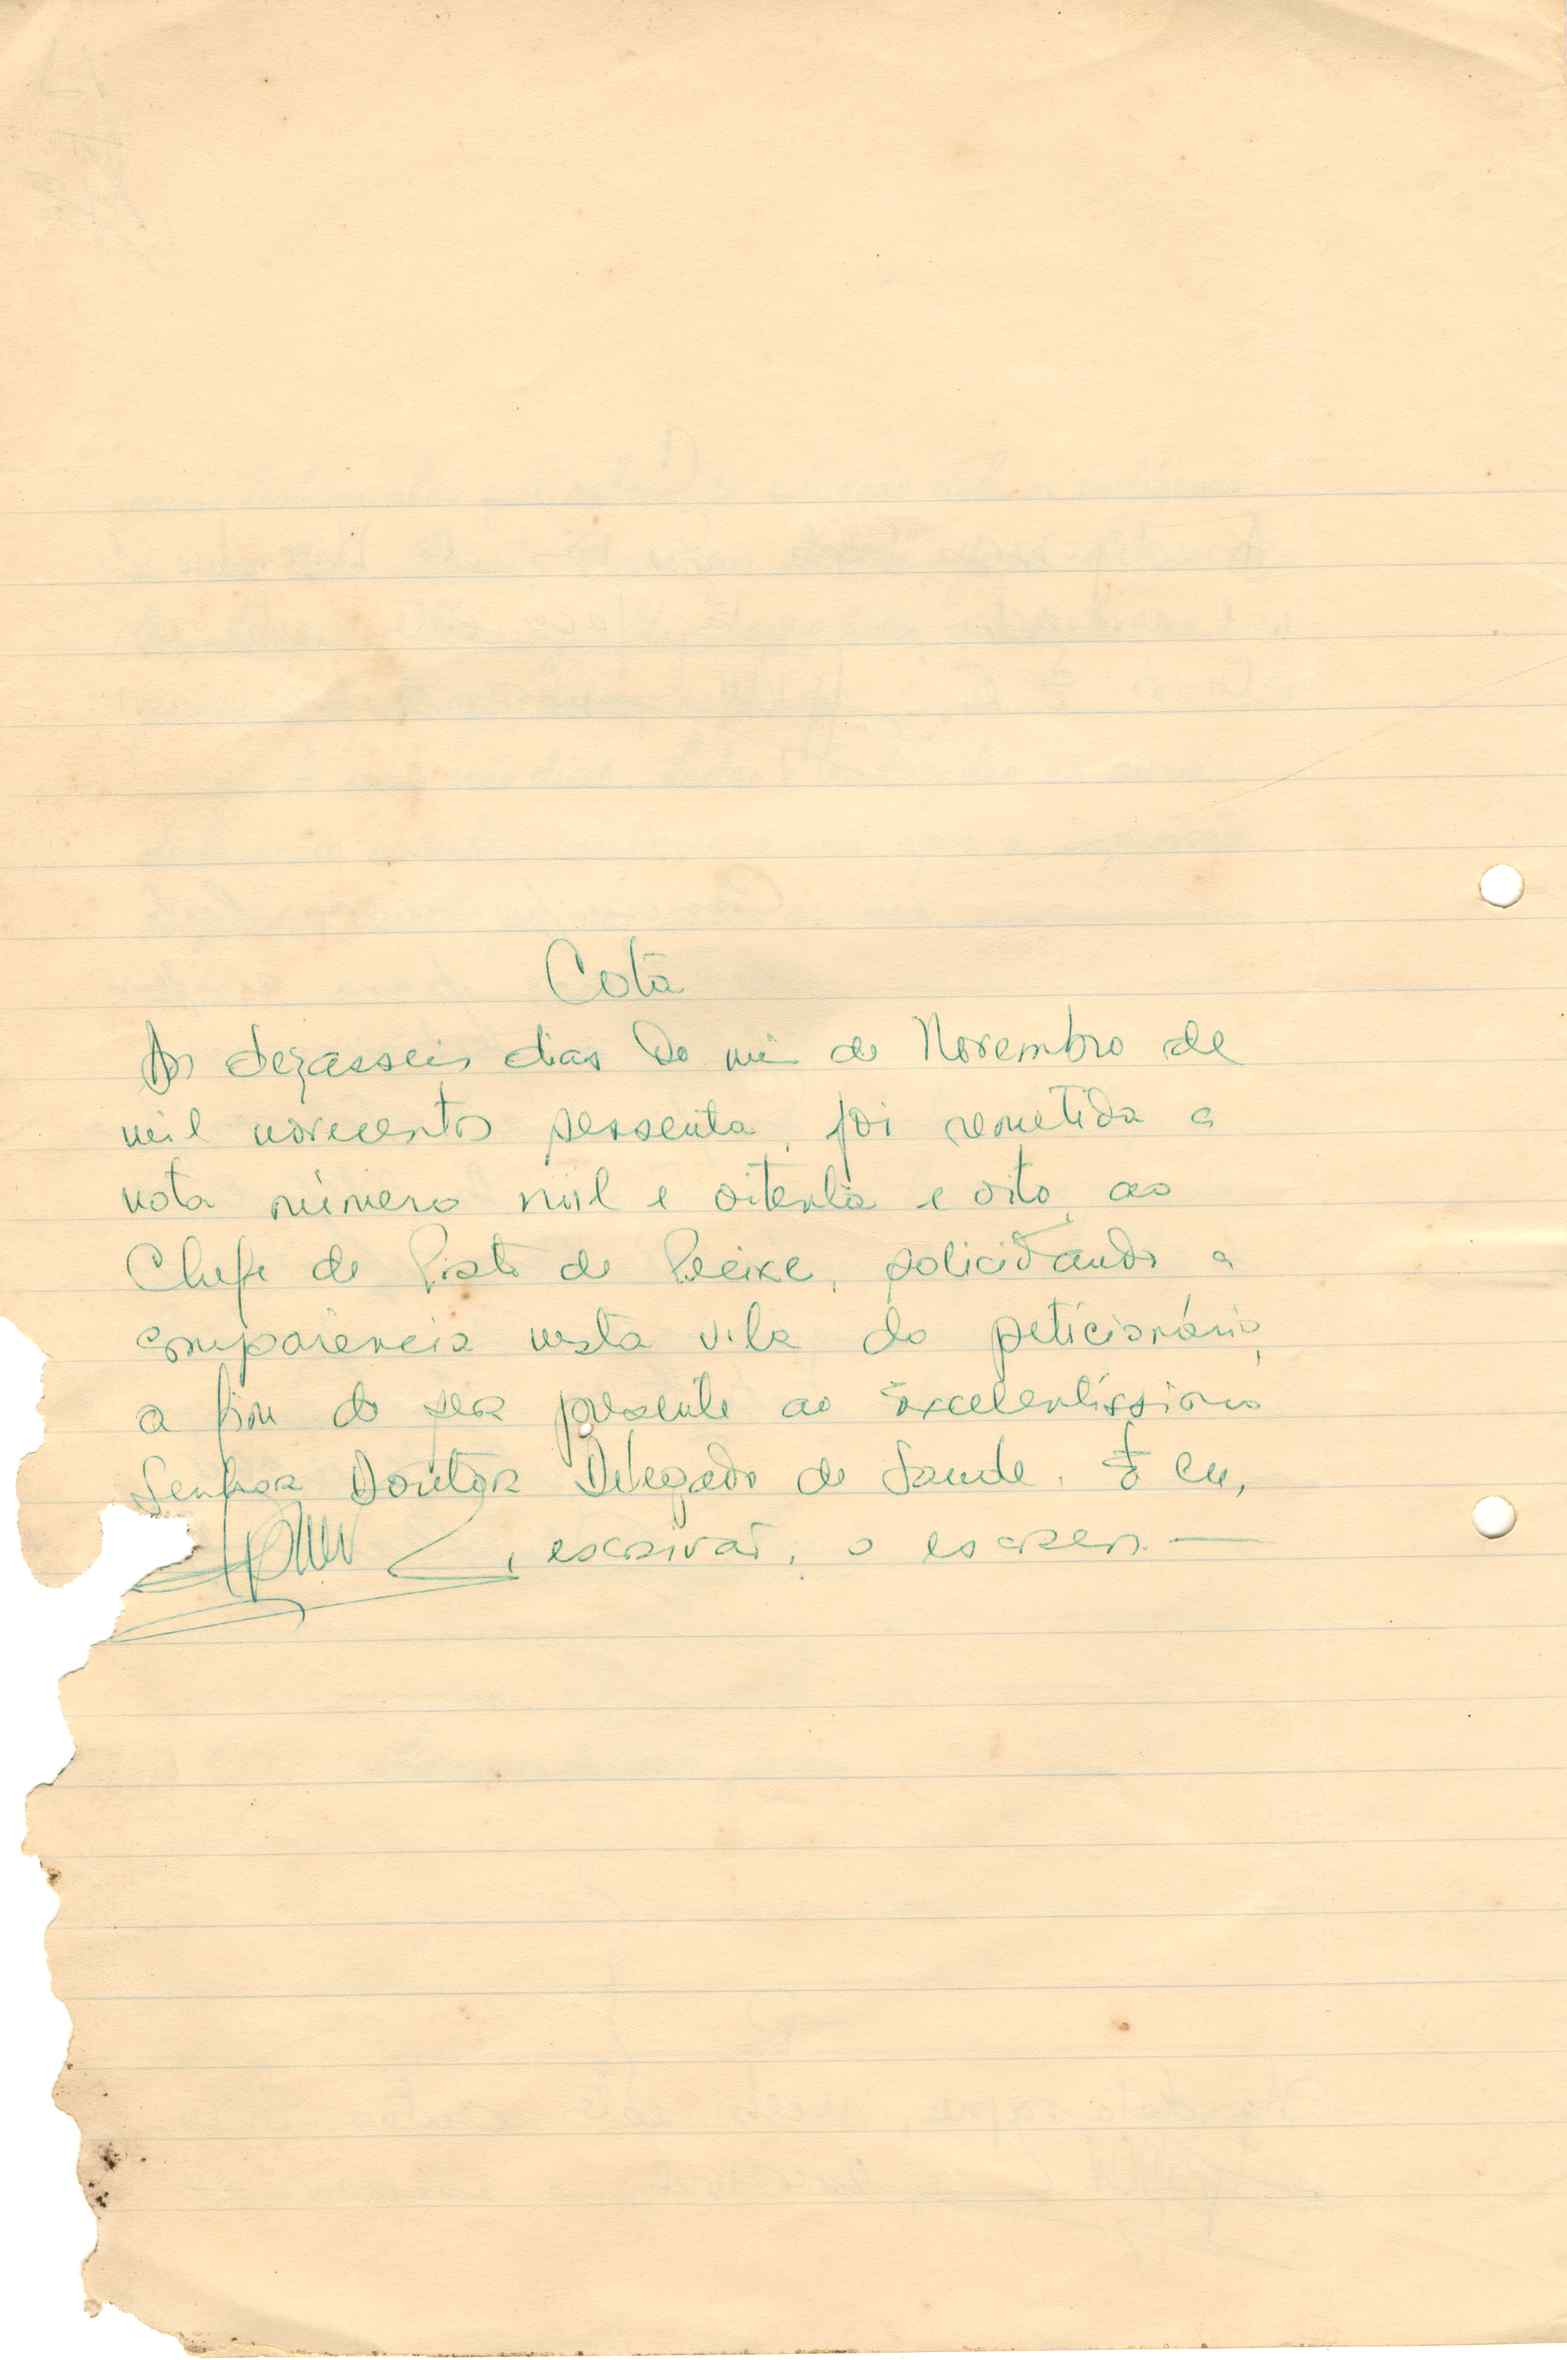 Cota
Aos dezasseis dias do mês de Novembro de
mil novecentos sessenta, foi remetida a
nota número mil e oitenta e oito, ao
Chefe de Posto de Peixe, solicitando a
comparencia nesta vila do peticionário,
a fim de ser presente ao Excelentíssimo
Senhor Doutor Delegado de Saude. E eu,
, escrivão, o escrevi. —